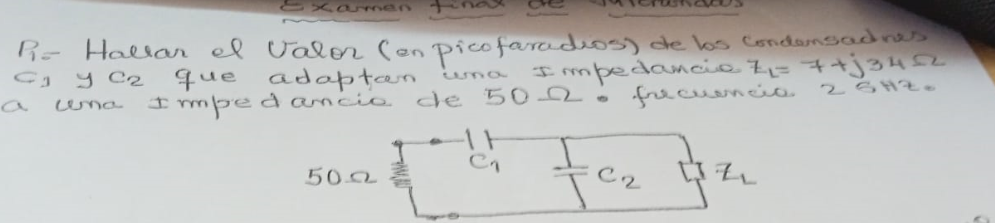 Examen final de
P1= Hallar el Valor (en picofaradios) de los Condensadores
C1 y C2 que adaptan una Impedancia ZL= 7+j34Ω
a una Impedancia de 50Ω. frecuencia 2GHz.
C1
50Ω
C2
ZL